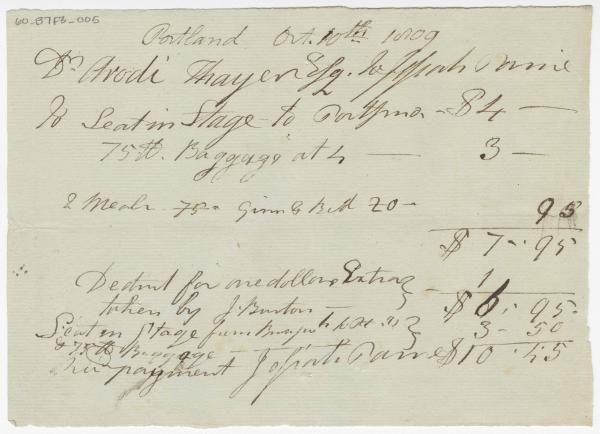 60-B7F3-005
Portland Oct. 10th 1809
Dr. Arodi Thayer Esq. to Josiah Paine
To Seat in Stage to Portsmo - $ 4 —
75 lb. Baggage at 4 — 3 —
2 Meals 75 Ginn & Bitt 20 — 95
$ 7 - 95
Deduct for one dollar Extra 1
taken by J. Burton — $ 6 - 95
Seat in Stage from 3 - 50
& 75 lb Baggage — $ 10 . 45
payment Josiah Paine